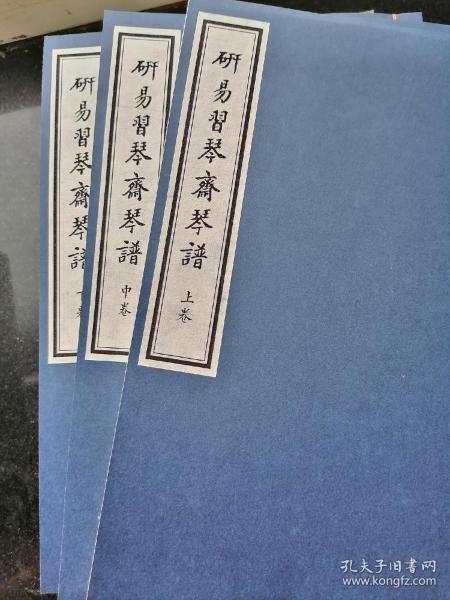 研易習琴齋琴譜
上卷
研易習琴齋琴譜
中卷
研易習琴齋琴譜
卷
孔夫子旧书网
www.kongfz.com